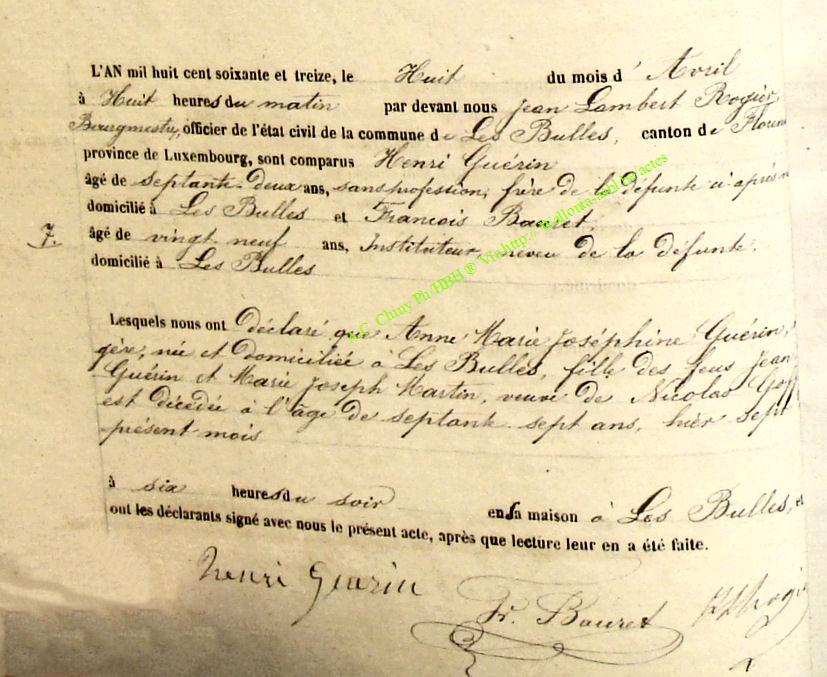 L'AN mil huit cent soixante et treize, le Huit du mois d' Avril
à Huit heures du matin par devant nous Jean Lambert Rogier,
Bourgmestre, officier de l'état civil de la commune de Les Bulles, canton de Floren
province de Luxembourg, sont comparus Henri Guérin
âgé de septante-deux ans, sans profession, frère de la défunte ci après n
domicilié à Les Bulles et François Bauret,
7. âgé de vingt neuf ans, Instituteur, neveu de la défunte,
domicilié à Les Bulles
Lesquels nous ont Déclaré que Anne Marie Joséphine Guérin,
gère, née et domiciliée à Les Bulles, fille des feus Jean
Guérin et Marie Joseph Martin, veuve de Nicolas
est décédée à l'âge de septante sept ans, hier sept
présent mois
à six heures du soir en sa maison à Les Bulles, et
ont les déclarants signé avec nous le présent acte, après que lecture leur en a été faite.
henri Guerin
Fr. Bauret
Chiny Ph HBH ® Via http: actes